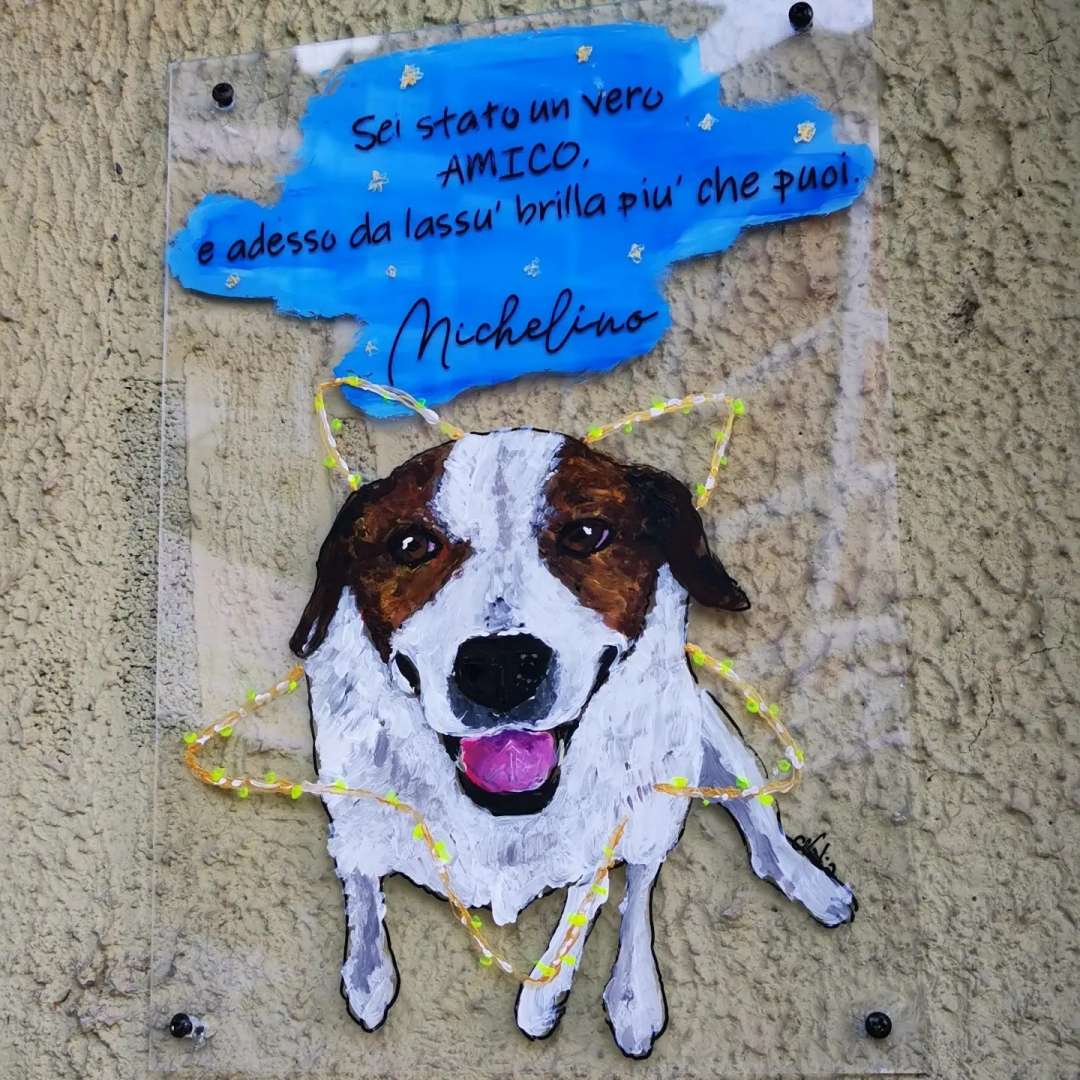 Sei stato un vero
AMICO,
e adesso da lassu' brilla piu' che puoi.
Michelino